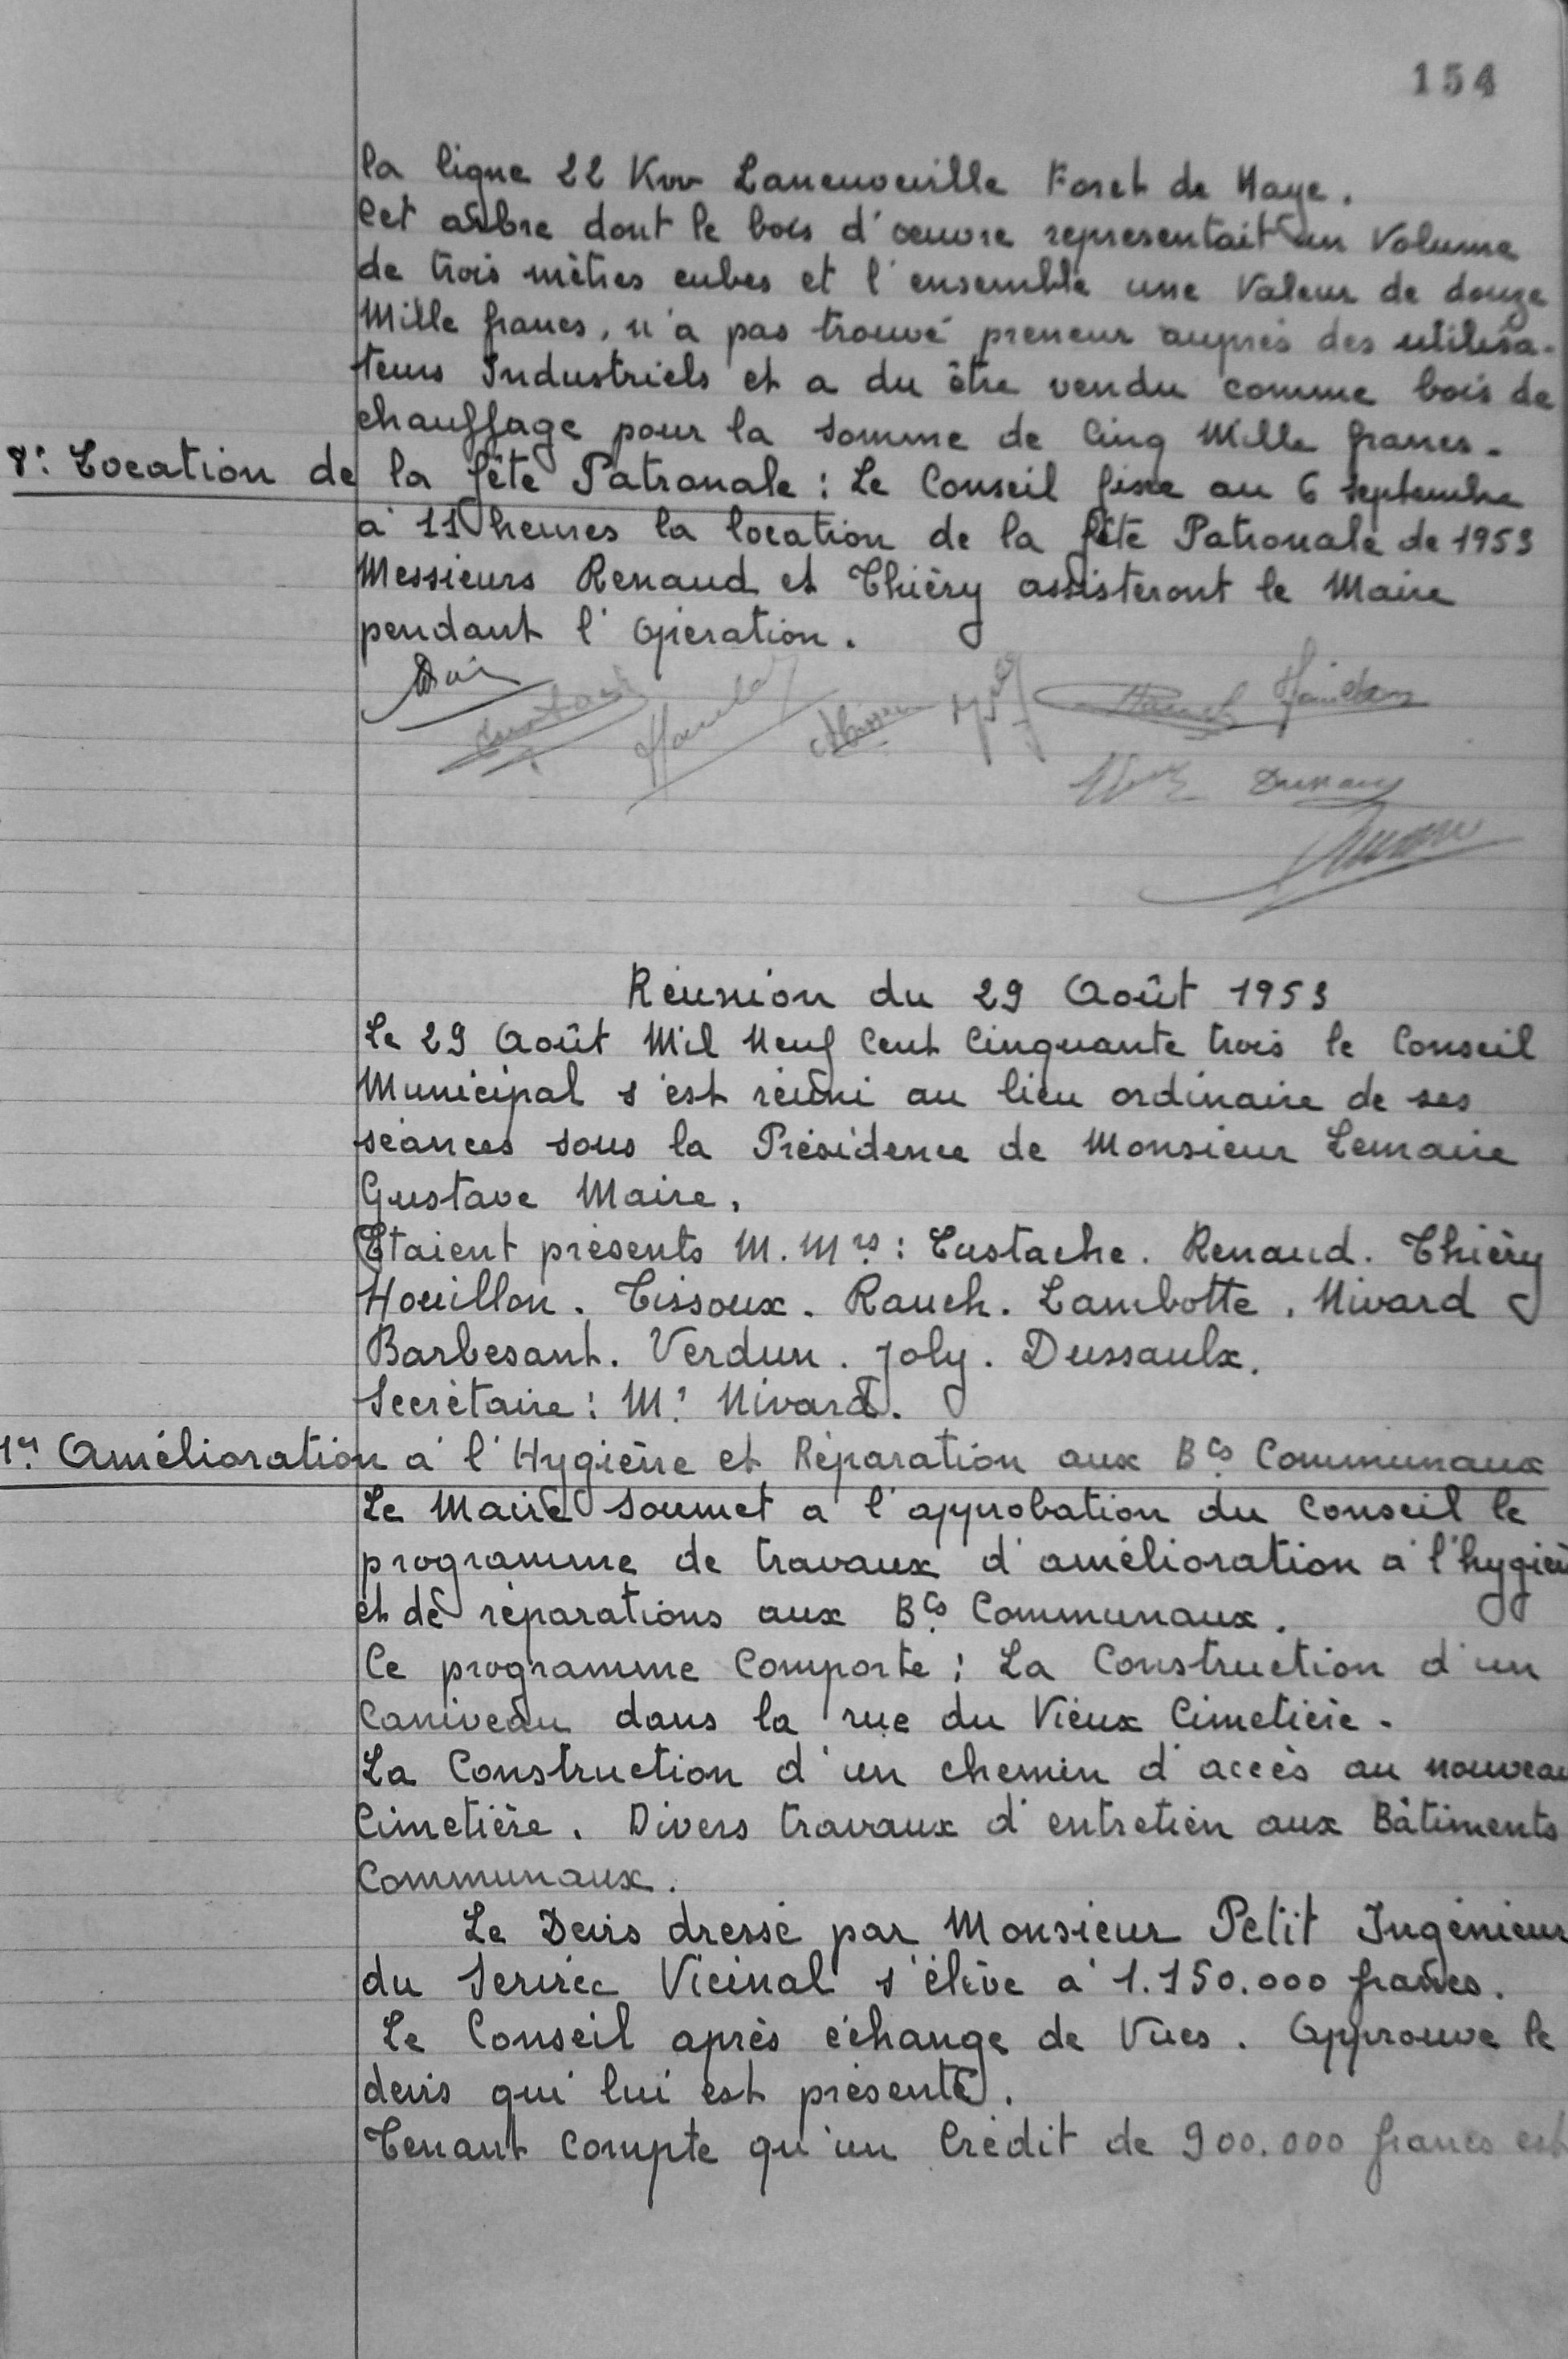 154
la ligne 22 Kvv Laneuveuille Foret de Haye.
Cet arbre dont le bois d'œuvre représentait un Volume
de trois mètres cubes et l'ensemble une Valeur de douze
Mille francs, n'a pas trouvé preneur auprès des utilisa-
teurs Industriels et a du être vendu comme bois de
chauffage pour la somme de Cinq Mille francs.
8°: Location de la fête Patronale : Le Conseil fixe au 6 septembre
à 11 heures la location de la fête Patronale de 1953
Messieurs Renaud et Thiéry assisteront le Maire
pendant l'opération.
Réunion du 29 Août 1953
Le 29 Août Mil Neuf Cent Cinquante trois le Conseil
Municipal s'est réuni au lieu ordinaire de ses
séances sous la Présidence de Monsieur Lemaire
Gustave Maire.
Etaient présents M. Mrs : Eustache. Renaud. Thiéry
Houillon. Tissoux. Rauch. Lambotte. Nivard
Barbesant. Verdun. Joly. Dussaulx.
Secrétaire : Mr Nivard.
1er Amélioration à l'Hygiène et Réparation aux Bts Communaux
Le Maire soumet à l'approbation du Conseil le
programme de travaux d'amélioration à l'hygiè
et de réparations aux Bts Communaux.
Ce programme Comporte : La Construction d'un
Caniveau dans la rue du Vieux Cimetière.
La Construction d'un chemin d'accès au nouveau
Cimetière. Divers travaux d'entretien aux Bâtiments
Communaux.
Le Devis dressé par Monsieur Petit Ingénieur
du Service Vicinal s'élève à 1.150.000 francs.
Le Conseil après échange de Vues. Approuve le
devis qui lui est présenté.
Tenant Compte qu'un Crédit de 900.000 francs est